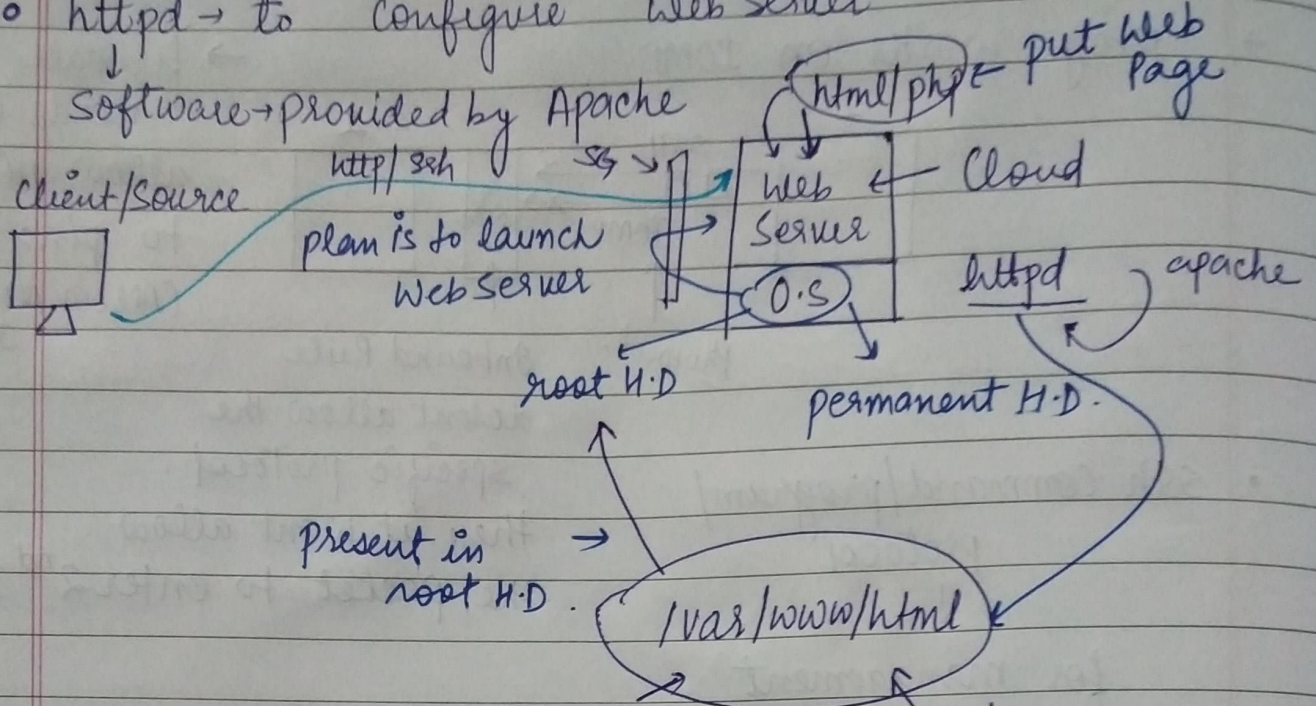 httpd → to configure web server
↓
Software → provided by Apache
html/php ← put web
page
http/ssh
SG
client/source
web
Server
← Cloud
plan is to launch
web server
O.S
httpd
apache
root H.D
permanent H.D.
present in →
root H.D.
/var/www/html